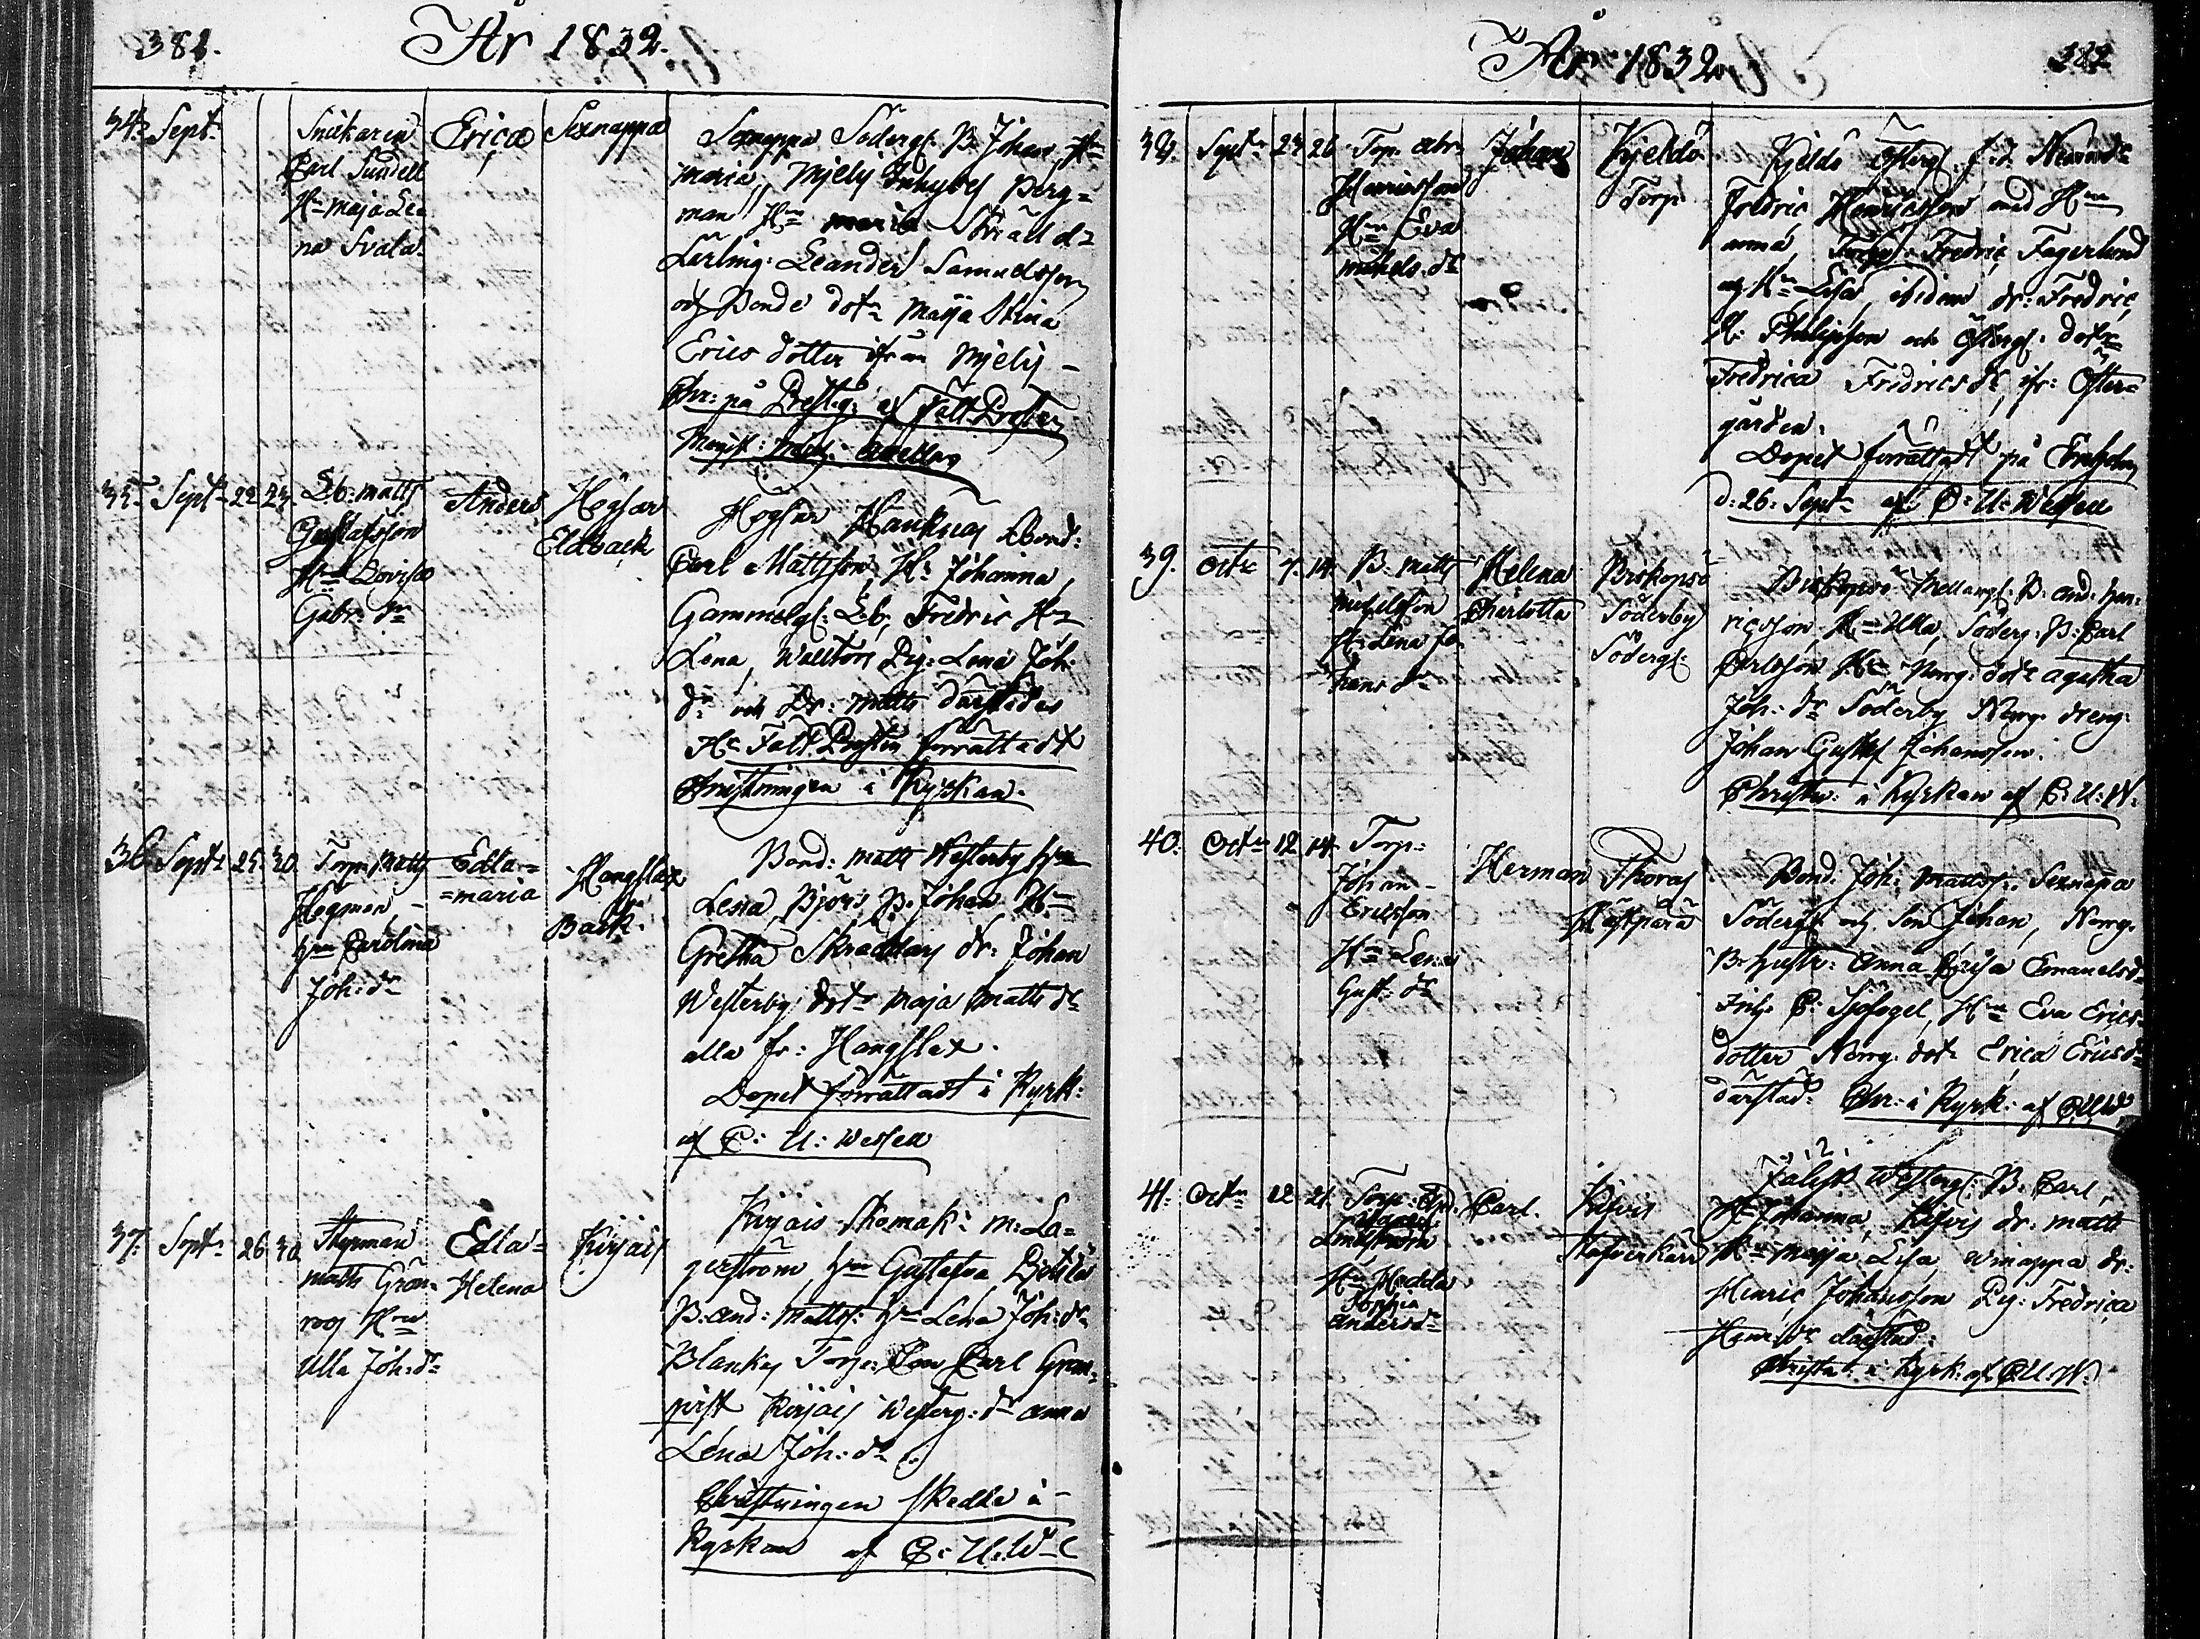 381.
År 1832.
34. Sept.
Snickaren
Carl Sundell
Hu Maja Le=
na Svala.
Erica
Sexnappa
Sexnappa Södergl. B. Johan, Hu
Maria, Mjelij Inhyses Berg=
man Hu Maria Skräd.
Lärling: Leander Samuelsson
och Bonde dotr Maja Stina
Erics dotter ifrån Mjelij –
Chr: på Prestg: af Fält Prosten
Magist:
35. Sept. 22 23.
Lb: Matts
Gustafsson
Hu Lovisa
Gabr: dr
Anders
Högsar
Eldback
Högsar Hankuas Bond:
Carl Mattsson, Hu Johanna,
Gammelgl: Lb, Fredric Hu
Lena, Pig: Lena Joh:
dr och Dr: Matts därstädes
Hr Fält Prosten förrättadt
Christningen i Kyrkan.
36. Sept. 25. 30.
Torp: Matts
Hegman,
hu Carolina
Joh: dr
Edla=
=Maria
Hangslax
Back.
Bond: Matts Westerby hu
Lena, Björs B. Johan Hu
Gretha Skraddars dr: Johan
Westerby, dotr Maja Matts dr
alla fr: Hangslax.
Dopet förrättadt i Kyrk:
af C: U: Wessell
37. Sept. 26. 30.
Styrman
Matts Grön=
roos Hru
Ulla Joh: dr
Edla=
Helena
Kirjais
Kirjais Skomak: M: La=
gerström, hu Gustafva
B. And: Matts: hu Lena Joh: dr
Blankas Torp: Son Carl Gran=
qvist Kirjais Westerg: dr Anna
Lena Joh: dr
Christningen skedde i –
Kyrkan af C: U: W–l
År 1832.
382.
38. Sept. 23 26
Torp: Abr:
Henricsson
Hu Eva
Michels dr
Johan
Kjeldö
Torp
Kjeldö Östergl. f. d. Nämnd.
Fredric Henricsson med Hru
Anna, Torp: Fredric Fagerlund
och Hu Lisa, ibidem dr: Fredric
M: Philipsson och Östergl: dotr
Fredrica Fredrics dr, ifr: Öster=
gården.
Dopet förrättadt på
d: 26: Sept. af C: U: Wessell
39. Octr 7. 14.
B: Matts
Michelsson
Hu Lena Jo=
hans dr
Helena
Charlotta
Biskopsö
Söderby
Södergl.
Biskopsö Mellangl: B: And: Hen=
ricsson, Hu Ulla, Söderg: B: Carl
Carlsson Hu Norrg: dotr Agatha
Joh: dr Söderby Norrg. dreng:
Johan Gustaf Johansson.
Christn: i Kyrkan af C: U: W:
40. Octr 12. 14.
Torp:
Johan
Ericsson
Hu Lena
Gust: dr
Herman
Thoras
Bond: Joh: Matts: Sexnappa
Södergl och Son Johan, Norrg.
B: hustr: Anna Cajsa Emanuels dr
C: Sjöfogel, Hu Eva Erics=
dotter Norrg. dotr Erica Ericsdr
därstäd: Chr: i Kyrk: af CUW
41. Octr 12 21.
Torp:
Lindström
Hu Hedda
Sophia
Anders dr
Carl.
Kifvis
Westergl: B: Carl,
Hu Johanna, Kifvis dr: Matts
Hu Maja Lisa, Winappa dr:
Henric Johansson Pig: Fredrica
Henr: dr därstäd:
Christn: i Kyrk: af C:U:W: